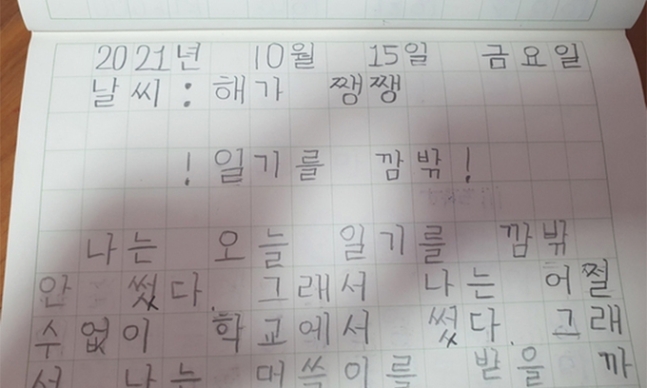 2021년 10월 15일 금요일
날씨: 해가 쨍쨍
!일기를 깜밖!
나는 오늘 일기를 깜밖
안 썼다. 그래서 나는 어쩔
수없이 학교에서 썼다. 그래
서 나는 머쓱이를 받을까